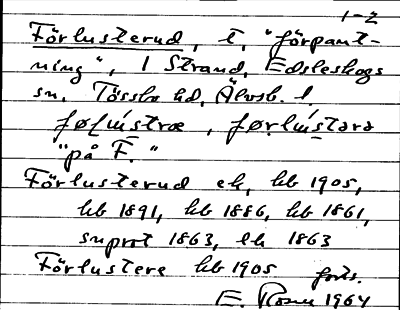 1-2
Förlusterud, t, "förpant-
ning", I Strand, Edsleskogs
sn. Tössbo hd, Älvsb. l.
"på F."
Förlusterud ek, hb 1905,
hb 1891, hb 1886, hb 1861,
suprot 1863, lk 1863
Förlustere hb 1905 forts.
E. Rosen 1964